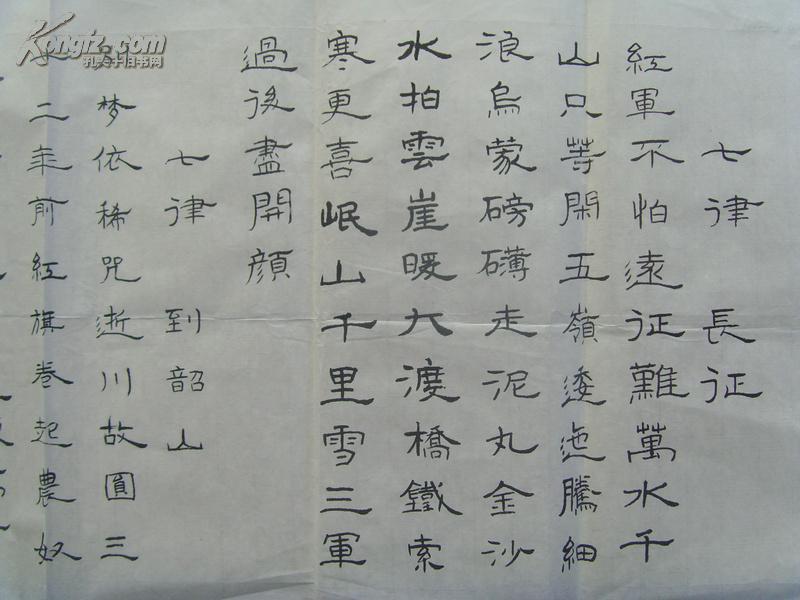 七律 長征
紅軍不怕遠征難萬水千
山只等閑五嶺逶迤騰細
浪烏蒙磅礴走泥丸金沙
水拍雲崖暖大渡橋鐵索
寒更喜岷山千里雪三軍
過後盡開顔
七律 到韶山
梦依稀咒逝川故圓三
二年前紅旗卷起農奴
Kongfz.com
孔夫子旧书网